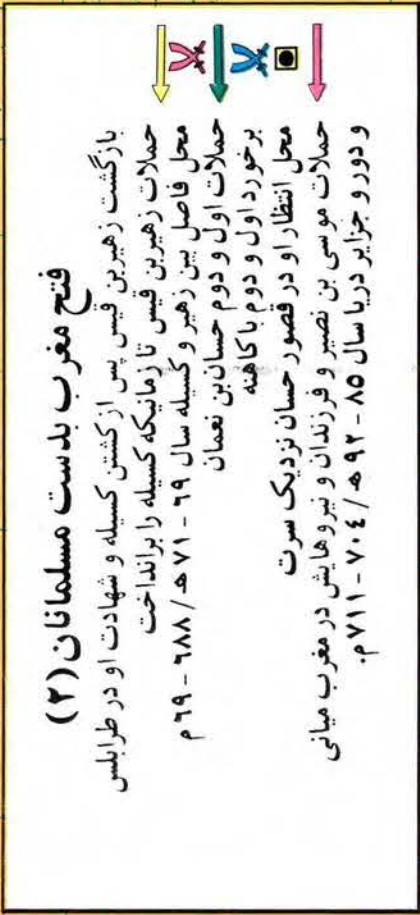 فتح مغرب بدست مسلمانان (۲)
بازگشت زهیربن قیس پس از کشتن کسیله و شهادت او در طرابلس
حملات زهیربن قیس تا زمانیکه کسیله را برانداخت
محل فاصل بین زهیر و کسیله سال ۶۹ - ۷۱ هـ / ۶۸۸ - ۶۹ م
حملات اول و دوم حسان‌بن نعمان
برخورد اول و دوم با کاهنه
محل انتظار او در قصور حسان نزدیک سرت
حملات موسی بن نصیر و فرزندان و نیروهایش در مغرب میانی
و دور و جزایر دریا سال ۸۵ - ۹۲ هـ / ۷۰٤ - ۷۱۱ م.